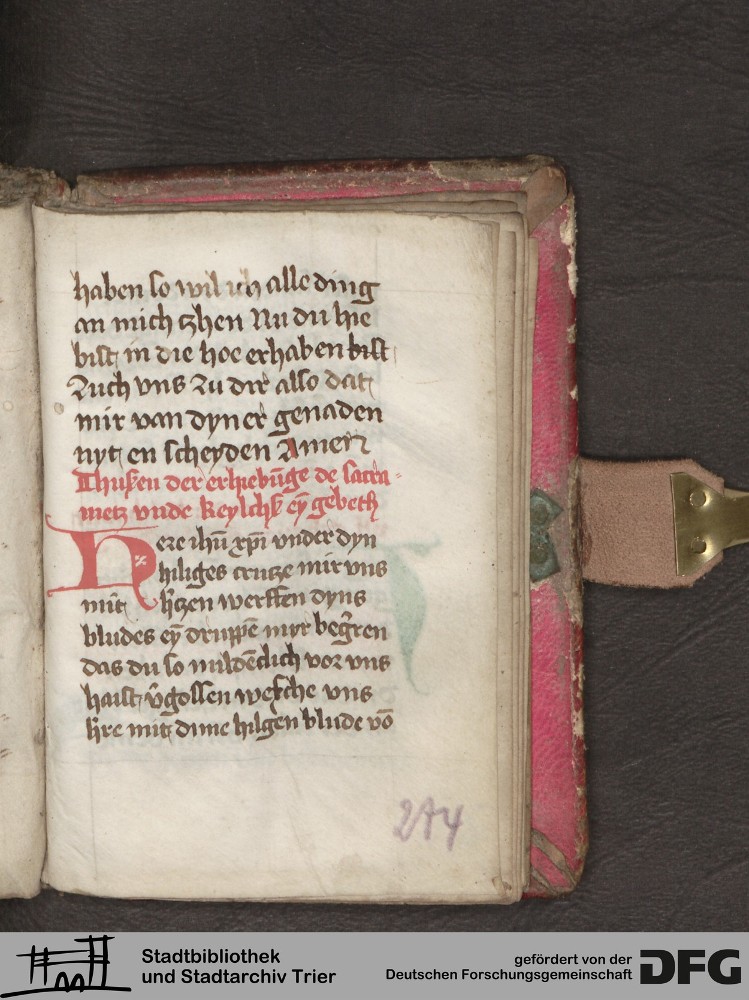 haben so wil ich alle ding
an mich czhen Nu du hie
bist in die hoe erhaben bist
Zuch vns zu dir also dat
mir van dyner genaden
nyt en scheyden Amen
Thusen der erhiebūge de sacra-
metz vnde keylchs eȳ gebeth
Here ihū xpī vnder dyn
hiliges crutze mir vns
mit h'tzen werffen dyns
bludes eȳ druppē myr beg'ren
das du so mildēclich vor vns
haist v'gossen wesche vns
h're mit dime hilgen blude vō
244
Stadtbibliothek
und Stadtarchiv Trier
gefördert von der
Deutschen Forschungsgemeinschaft
DFG